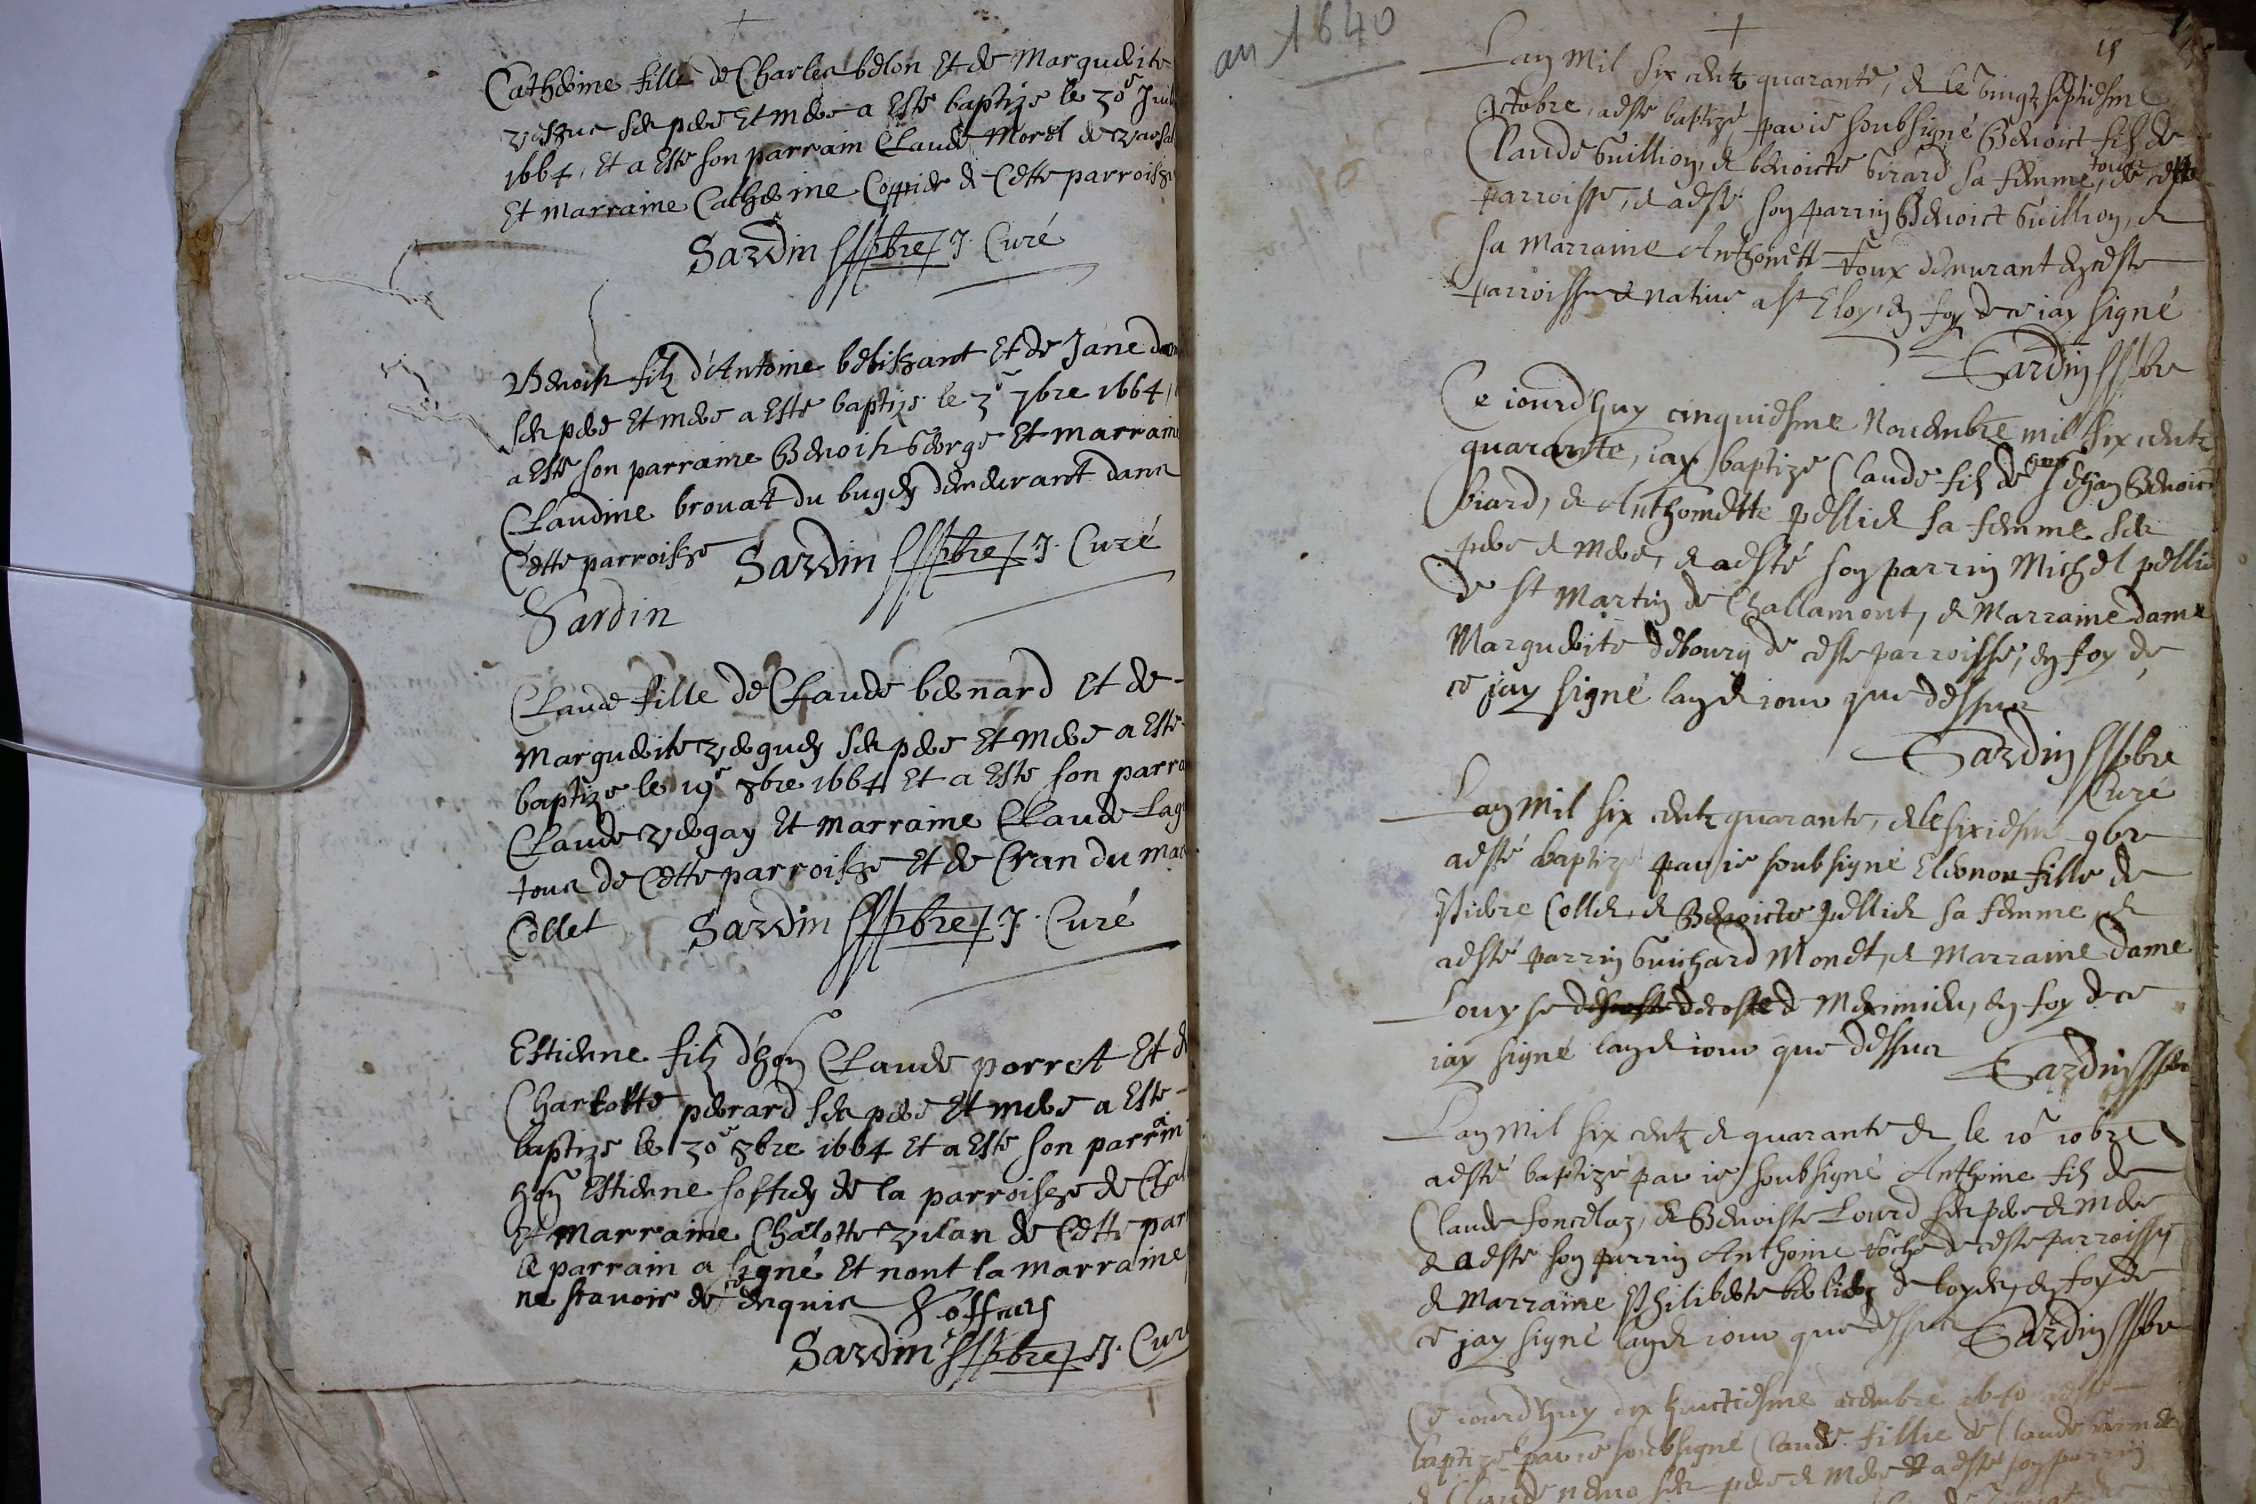 Catherine fille de Charles belon Et de Marguerite
ses pere Et mere a Este baptize le 30e
1664, Et a Este son parrain Claude Morel de
Et marraine Catherine de Cette parroisse
Sardin pbre J. Curé
Benoist filz d'Antoine Et de Jane
ses pere Et mere a Este baptize le 3e 7bre 1664,
a Este son parraine Benoist George Et marraine
Claudine brouat du bugey demeurant dans
Cette parroisse Sardin pbre J. Curé
Sardin
Claude fille de Claude bernard Et de
Marguerite ses pere Et mere a Este
baptize le 19e 8bre 1664 Et a Este son
Claude Et marraine Claude
tous de Cette parroisse Et de Cran du
Collet Sardin pbre J. Curé
Estienne filz d'hon Claude porret Et
Charlotte perrard ses pere Et mere a Este
baptize le 30e 8bre 1664 Et a Este son parrain
hon Estienne de la parroisse de
Et marraine Chalotte vilan de Cette
le parrain a signé Et nont la marraine
ne scavoir de ce enquis
Sardin pbre J.
an 1640
15
Lan Mil six centz quarante, et le vingt septiesme
Octobre, a este baptizé par ie soubsigné Benoict filz de
Claude Guillion, et benoicte Girard sa femme, tous de ceste
parroisse, et a este son parrin Benoict Guillion, et
sa Marraine Anthonette Roux demurant en ceste
parroisse et native a st Eloy, en foy de ce iay signé
Sardin pbre
Ce iourd'huy cinquiesme Novembre mil six centz
quarante, iay baptize Claude filz de Jehan Benoict
biard, et Anthonette pellict sa femme ses
pere et mere, et a esté son parrin Michel
de st Martin de Challamont, et Marraine dame
Marguerite debourg de ceste parroisse, en foy de
ce jay signé lan et iour que dessus
Sardin pbre
Curé
Lan Mil six centz quarante, et le sixiesme 9bre
a esté baptizé par ie soubsigné Eleonor fille de
Pierre Collet, et Benoicte pellict sa femme, et
a esté parrin Guichard Monet, et Marraine dame
Louyse decoste de Meximieu, en foy de ce
iay signé lan et iour que dessus Sardin pbre
Lan Mil six centz et quarante et le 10e 10bre
a esté baptizé par ie soubsigné Anthoine filz de
Claude et Benoiste Lourd ses pere et mere
et a este son parrin Anthoine Roche de ceste parroisse
et Marraine Philiberte de loyes, en foy de
ce jay signé lan et iour que dessus Sardin pbre
Ce iourd'huy dix huictiesme decembre 1640 a esté
baptizé par ie soubsigné Claude fillie de Claude
et Claude ses pere et mere et a esté son parrin